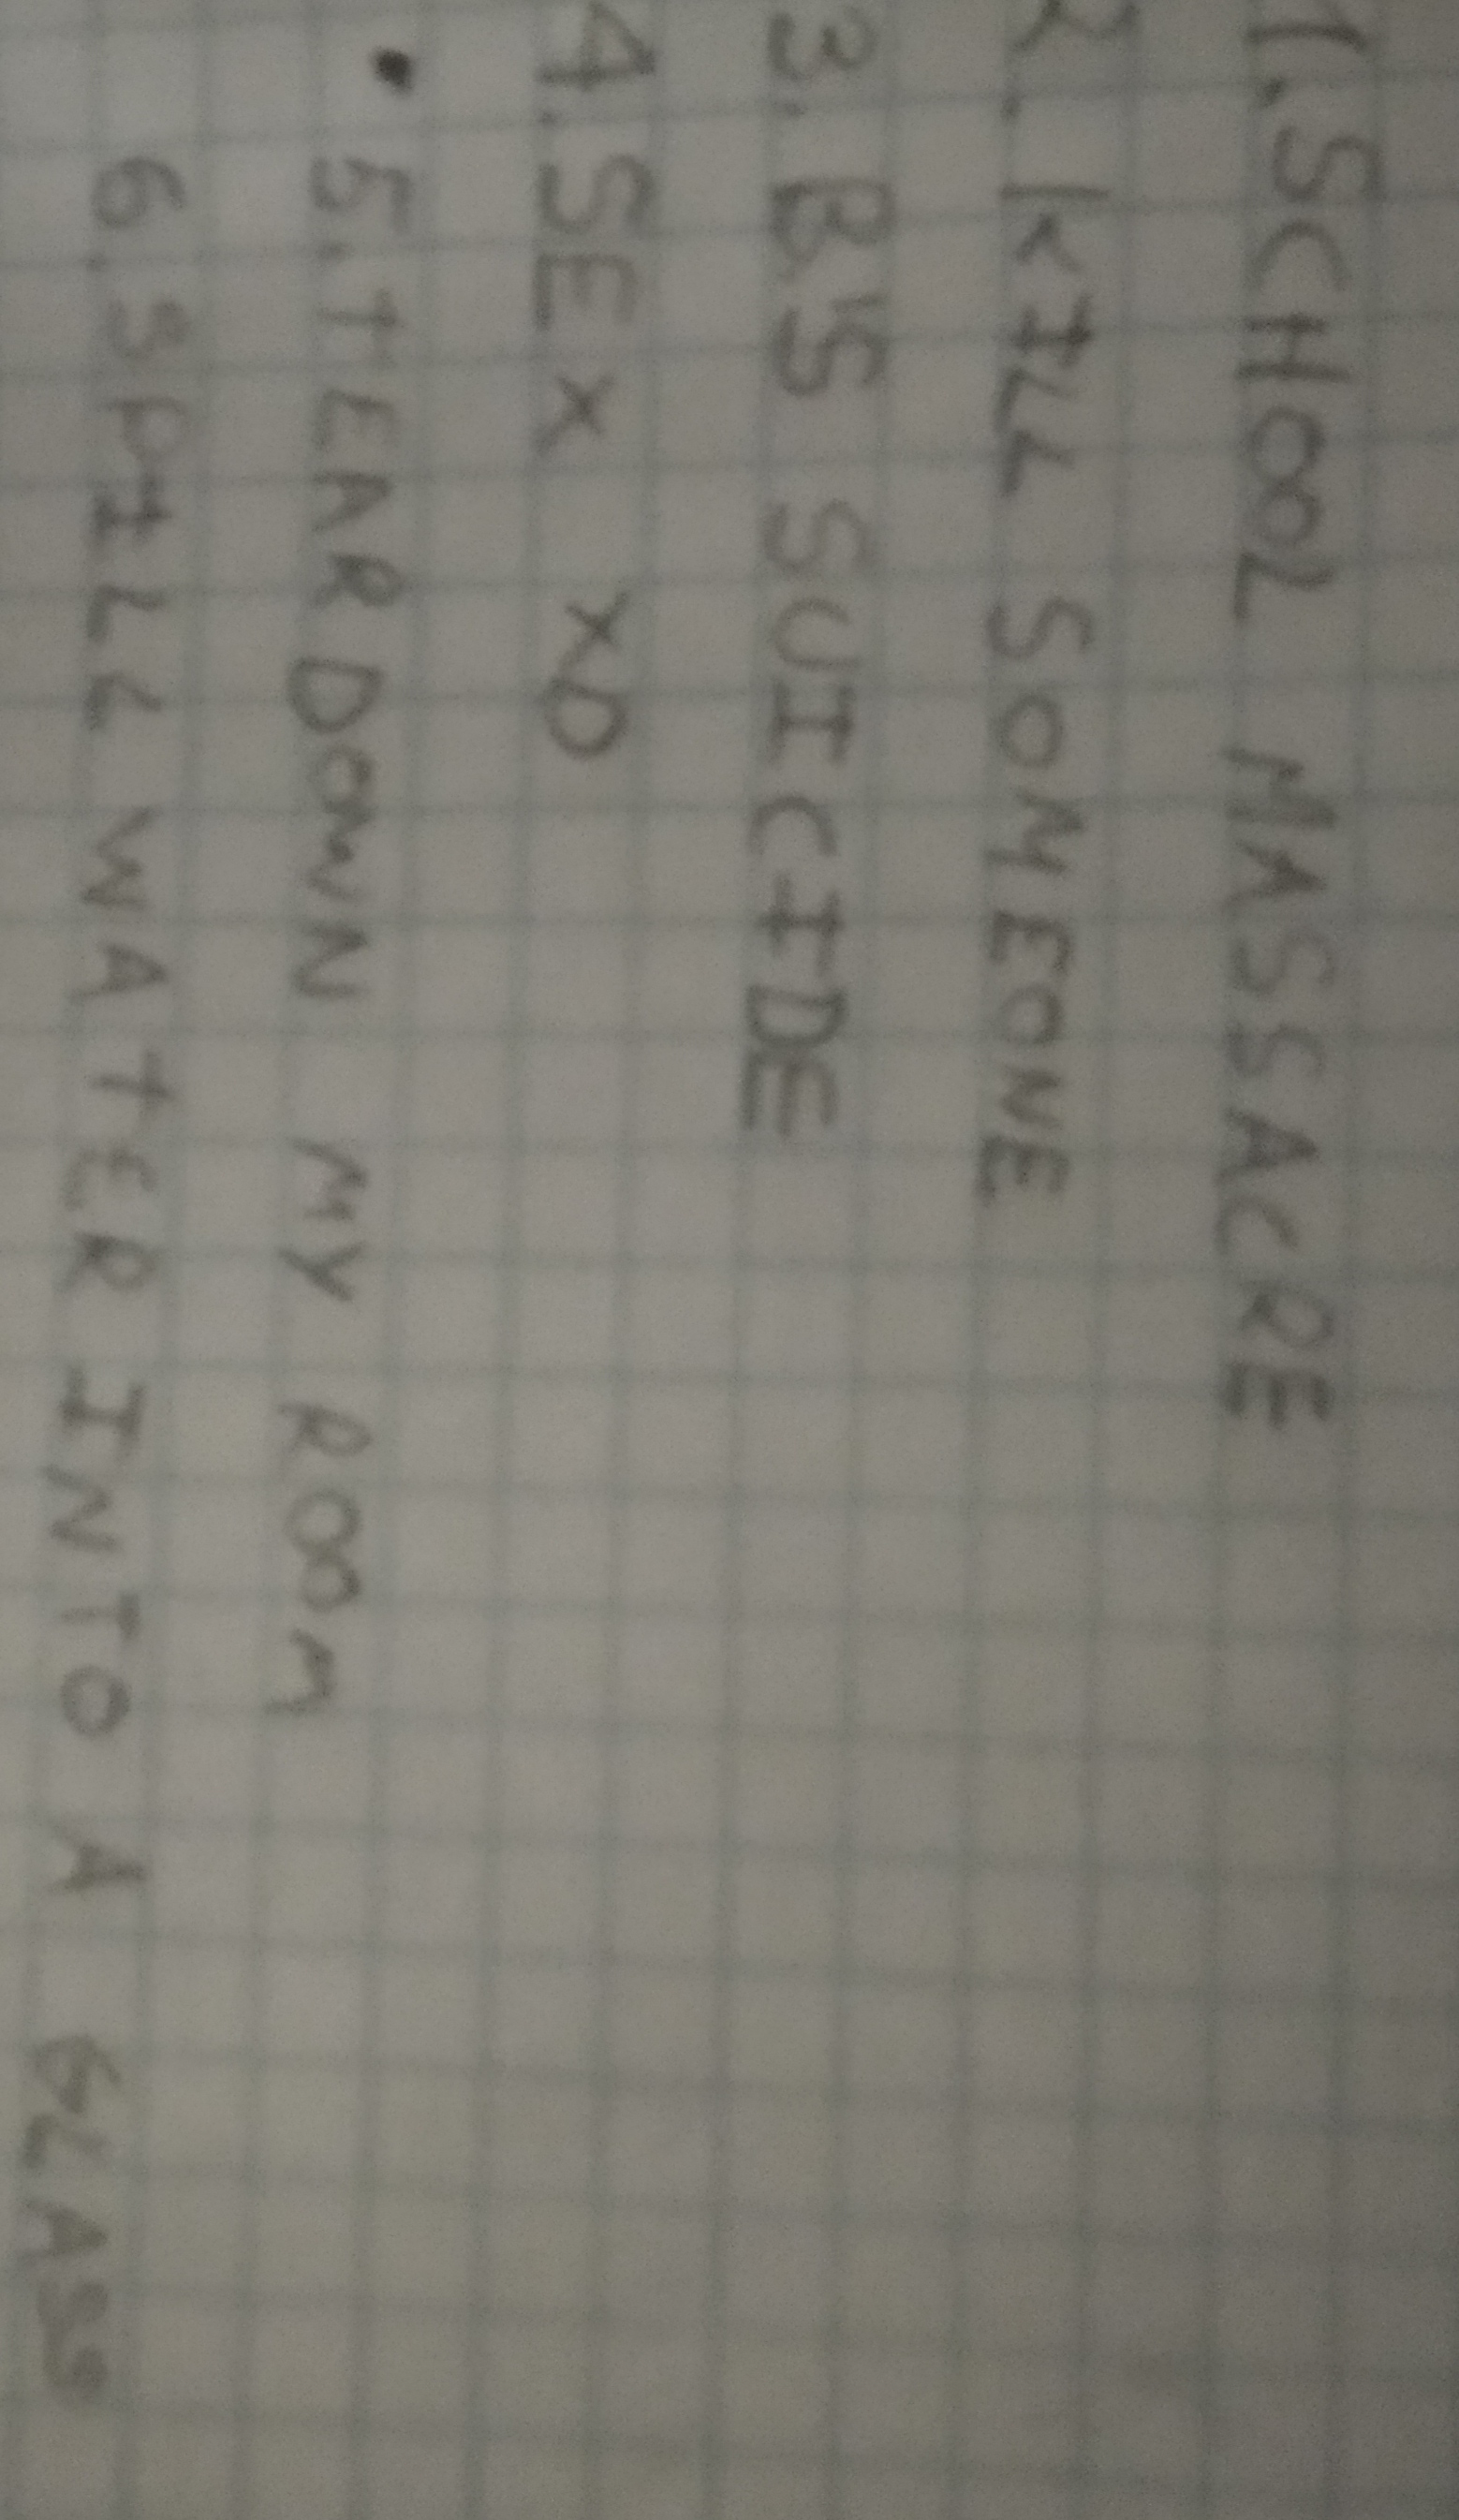 1. SCHOOL MASSACRE
2. KILL SOMEONE
3. B'S SUICIDE
4. SEX XD
5. TEAR DOWN MY ROOM
6. SPILL WATER INTO A GLASS